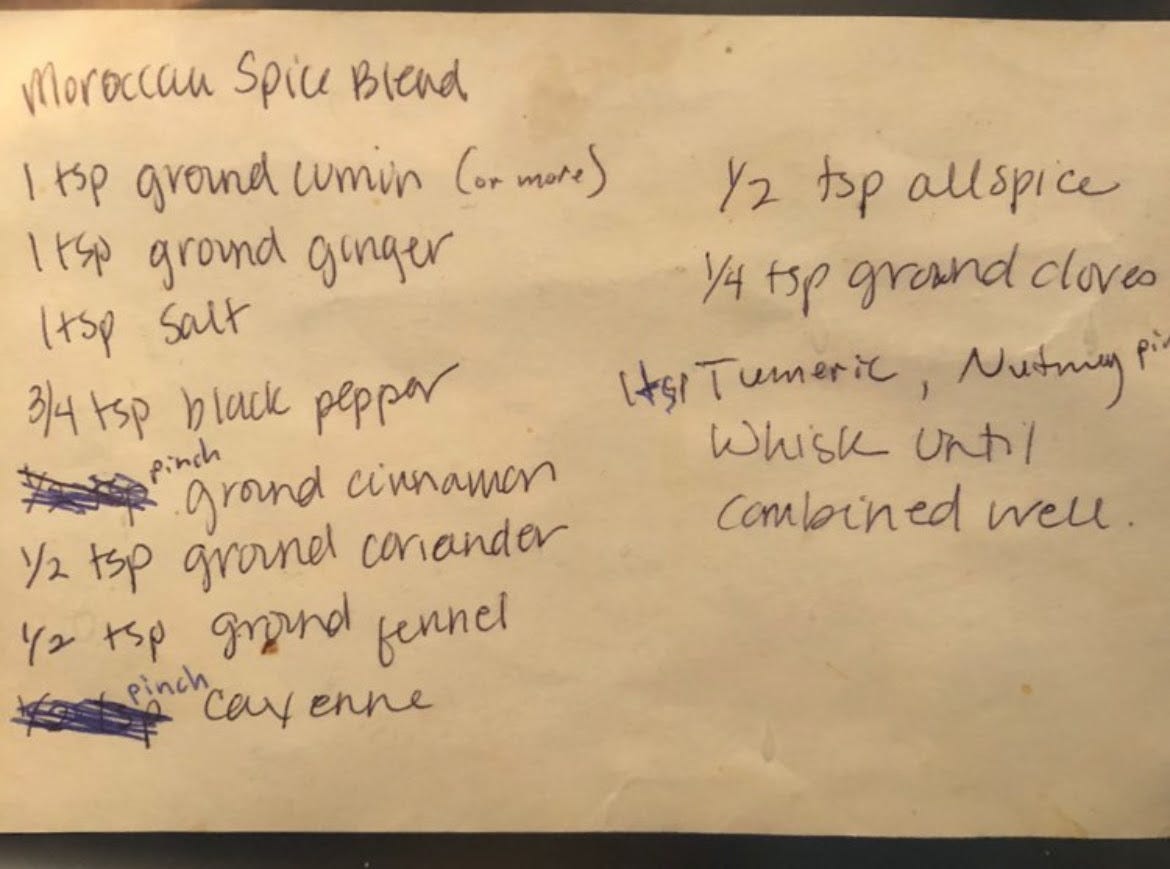 Moroccan Spice Blend
1 tsp ground cumin (or more)
1 tsp ground ginger
1 tsp salt
3/4 tsp black pepper
pinch ground cinnamon
1/2 tsp ground coriander
1/2 tsp ground fennel
pinch cayenne
1/2 tsp allspice
1/4 tsp ground cloves
1 tsp Tumeric, Nutmeg
Whisk until
combined well.